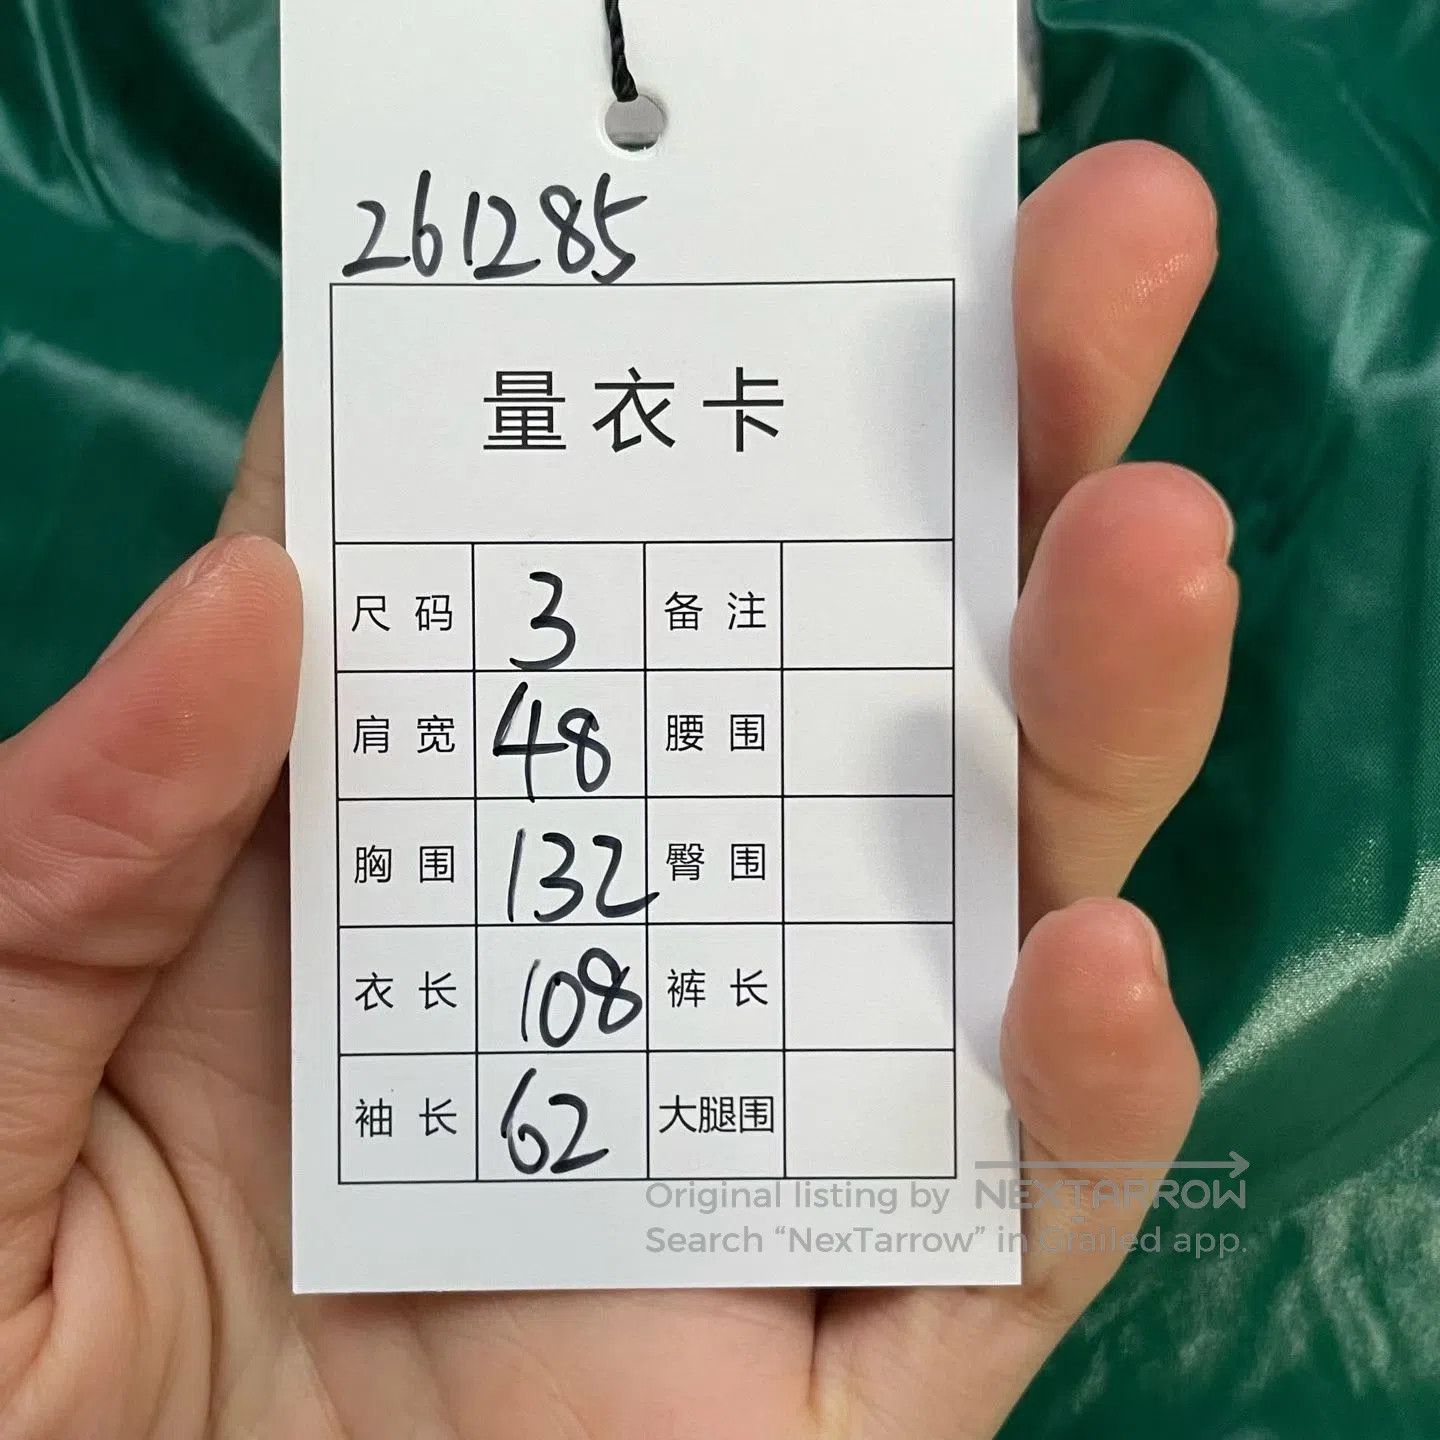 261285
量衣卡
尺码 3 备注
肩宽 48 腰围
胸围 132 臀围
衣长 108 裤长
袖长 62 大腿围
Original listing by NEXTARROW
Search “NexTarrow” in Grailed app.